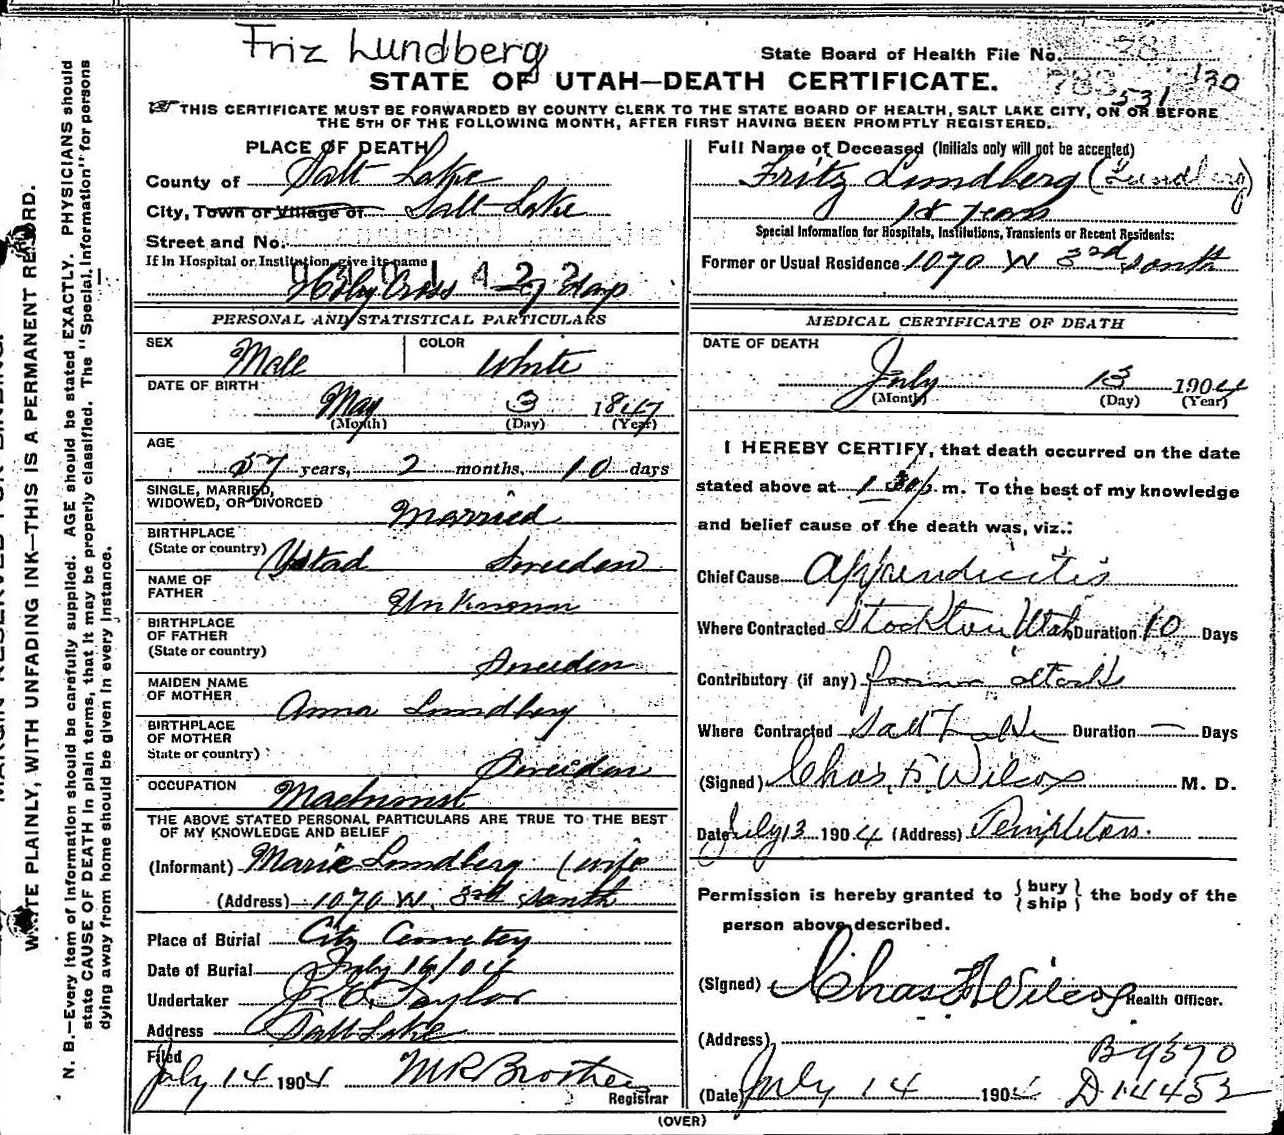 Friz Lundberg
State Board of Health File No.
STATE OF UTAH—DEATH CERTIFICATE.
130
531
THIS CERTIFICATE MUST BE FORWARDED BY COUNTY CLERK TO THE STATE BOARD OF HEALTH, SALT LAKE CITY, ON OR BEFORE
THE 5TH OF THE FOLLOWING MONTH, AFTER FIRST HAVING BEEN PROMPTLY REGISTERED.
PLACE OF DEATH
County of Salt Lake
City, Town or Village of Salt Lake
Street and No.
If in Hospital or Institution, give its name
Holy Cross 27 days
PERSONAL AND STATISTICAL PARTICULARS
SEX Male COLOR White
DATE OF BIRTH
May 3 1847
(Month) (Day) (Year)
AGE
57 years, 2 months, 10 days
SINGLE, MARRIED,
WIDOWED, OR DIVORCED Married
BIRTHPLACE
(State or country) Ystad Sweeden
NAME OF
FATHER UnKnown
BIRTHPLACE
OF FATHER
(State or country) Sweeden
MAIDEN NAME
OF MOTHER Anna Lundberg
BIRTHPLACE
OF MOTHER
State or country) Sweeden
OCCUPATION Machinist
THE ABOVE STATED PERSONAL PARTICULARS ARE TRUE TO THE BEST
OF MY KNOWLEDGE AND BELIEF
(Informant) Marie Lundberg (wife
(Address) 1070 W. 3rd South
Place of Burial City Cemetery
Date of Burial July 16/04
Undertaker Taylor
Address Salt Lake
Filed
July 14 1904 M R Brothers
Registrar
Full Name of Deceased (Initials only will not be accepted)
Fritz Lundberg (Lundberg)
18 Years
Special Information for Hospitals, Institutions, Transients or Recent Residents:
Former or Usual Residence 1070 W 3rd South
MEDICAL CERTIFICATE OF DEATH
DATE OF DEATH
July 13 1904
(Month) (Day) (Year)
I HEREBY CERTIFY, that death occurred on the date
stated above at 1 30 p. m. To the best of my knowledge
and belief cause of the death was, viz.:
Chief Cause Appendicitis
Where Contracted Stockton Utah Duration 10 Days
Contributory (if any) former attack
Where Contracted Salt Lake Duration — Days
(Signed) Chas. F. Wilcox M. D.
Date July 13 1904 (Address) Templeton.
Permission is hereby granted to {bury
ship} the body of the
person above described.
(Signed) Chas F Wilcox Health Officer.
(Address)
B 9370
(Date) July 14 1904 D 14453
(OVER)
WRITE PLAINLY, WITH UNFADING INK—THIS IS A PERMANENT RECORD.
N. B.—Every item of information should be carefully supplied. AGE should be stated EXACTLY. PHYSICIANS should
state CAUSE OF DEATH in plain terms, that it may be properly classified. The "Special Information" for persons
dying away from home should be given in every instance.